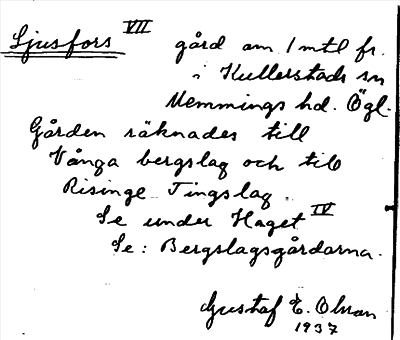 Ljusfors VII gård om 1 mtl fr.
i Kullerstads sn
Memmings hd. Ögl.
Gården räknades till
Vånga bergslag och till
Risinge Tingslag.
Se under Haget IV
Se: Bergslagsgårdarna.
Gustaf E. Olsson
1937